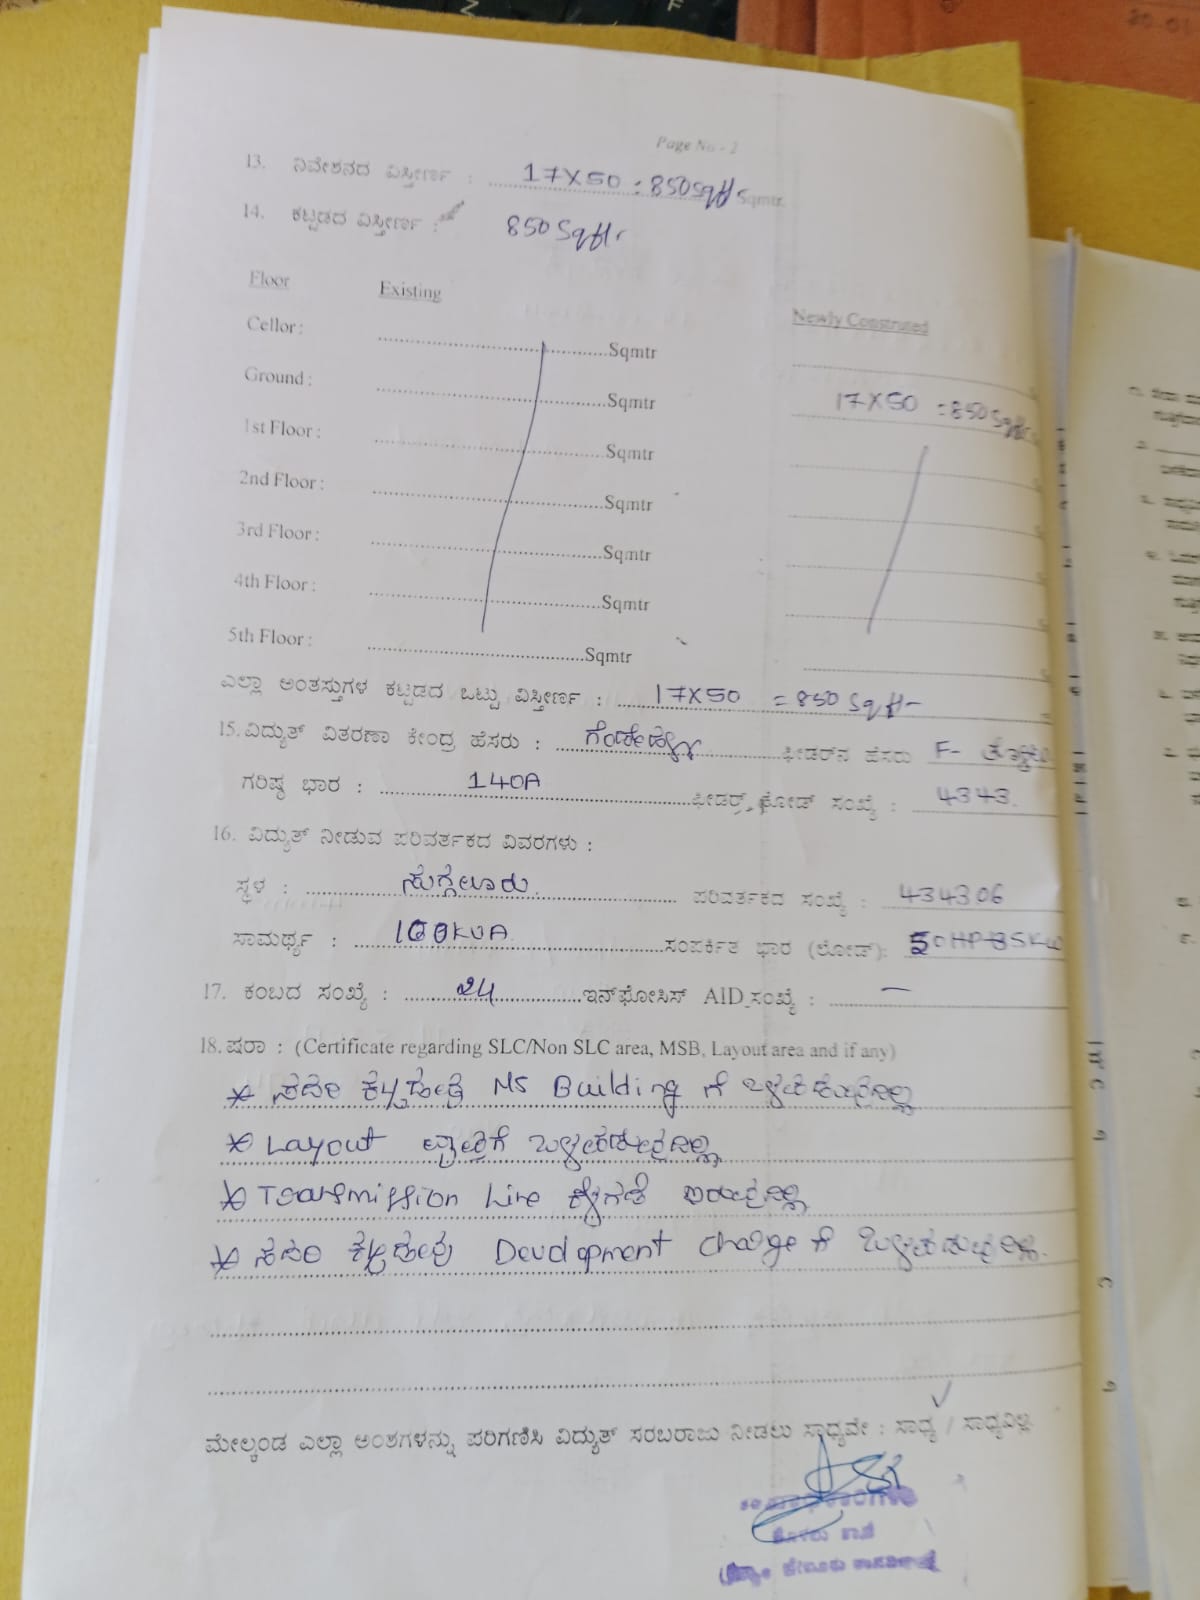 Page No - 2
13. ನಿವೇಶನದ ವಿಸ್ತೀರ್ಣ : 17X50 = 850 Sqft Sqmtr.
14. ಕಟ್ಟಡದ ವಿಸ್ತೀರ್ಣ : 850 Sqft.
Floor Existing Newly Construted
Cellor : Sqmtr
Ground : Sqmtr 17X50 = 850 Sqft
1st Floor : Sqmtr
2nd Floor : Sqmtr
3rd Floor : Sqmtr
4th Floor : Sqmtr
5th Floor : Sqmtr
ಎಲ್ಲಾ ಅಂತಸ್ತುಗಳ ಕಟ್ಟಡದ ಒಟ್ಟು ವಿಸ್ತೀರ್ಣ : 17X50 = 850 Sqft
15. ವಿದ್ಯುತ್ ವಿತರಣಾ ಕೇಂದ್ರ ಹೆಸರು : ಫೀಡರ್‌ನ ಹೆಸರು F-
ಗರಿಷ್ಠ ಭಾರ : 140A ಫೀಡರ್ ಕೋಡ್ ಸಂಖ್ಯೆ : 4343.
16. ವಿದ್ಯುತ್ ನೀಡುವ ಪರಿವರ್ತಕದ ವಿವರಗಳು :
ಸ್ಥಳ : ಪರಿವರ್ತಕದ ಸಂಖ್ಯೆ : 434306
ಸಾಮರ್ಥ್ಯ : 100KVA ಸಂಪರ್ಕಿತ ಭಾರ (ಲೋಡ್):
17. ಕಂಬದ ಸಂಖ್ಯೆ : 24 ಇನ್‌ಫೋಸಿಸ್ AID ಸಂಖ್ಯೆ : —
18. ಷರಾ : (Certificate regarding SLC/Non SLC area, MSB, Layout area and if any)
* ಸದರಿ MS Building ಗೆ ಒಳಪಡುವುದಿಲ್ಲ
* Layout ಒಳಪಡುವುದಿಲ್ಲ
* Transmission Line ಕೆಳಗಡೆ ಬರುವುದಿಲ್ಲ
* ಸದರಿ ಕಟ್ಟಡವು Development charge ಗೆ ಒಳಪಡುವುದಿಲ್ಲ.
ಮೇಲ್ಕಂಡ ಎಲ್ಲಾ ಅಂಶಗಳನ್ನು ಪರಿಗಣಿಸಿ ವಿದ್ಯುತ್ ಸರಬರಾಜು ನೀಡಲು ಸಾಧ್ಯವೇ : ಸಾಧ್ಯ / ಸಾಧ್ಯವಿಲ್ಲ